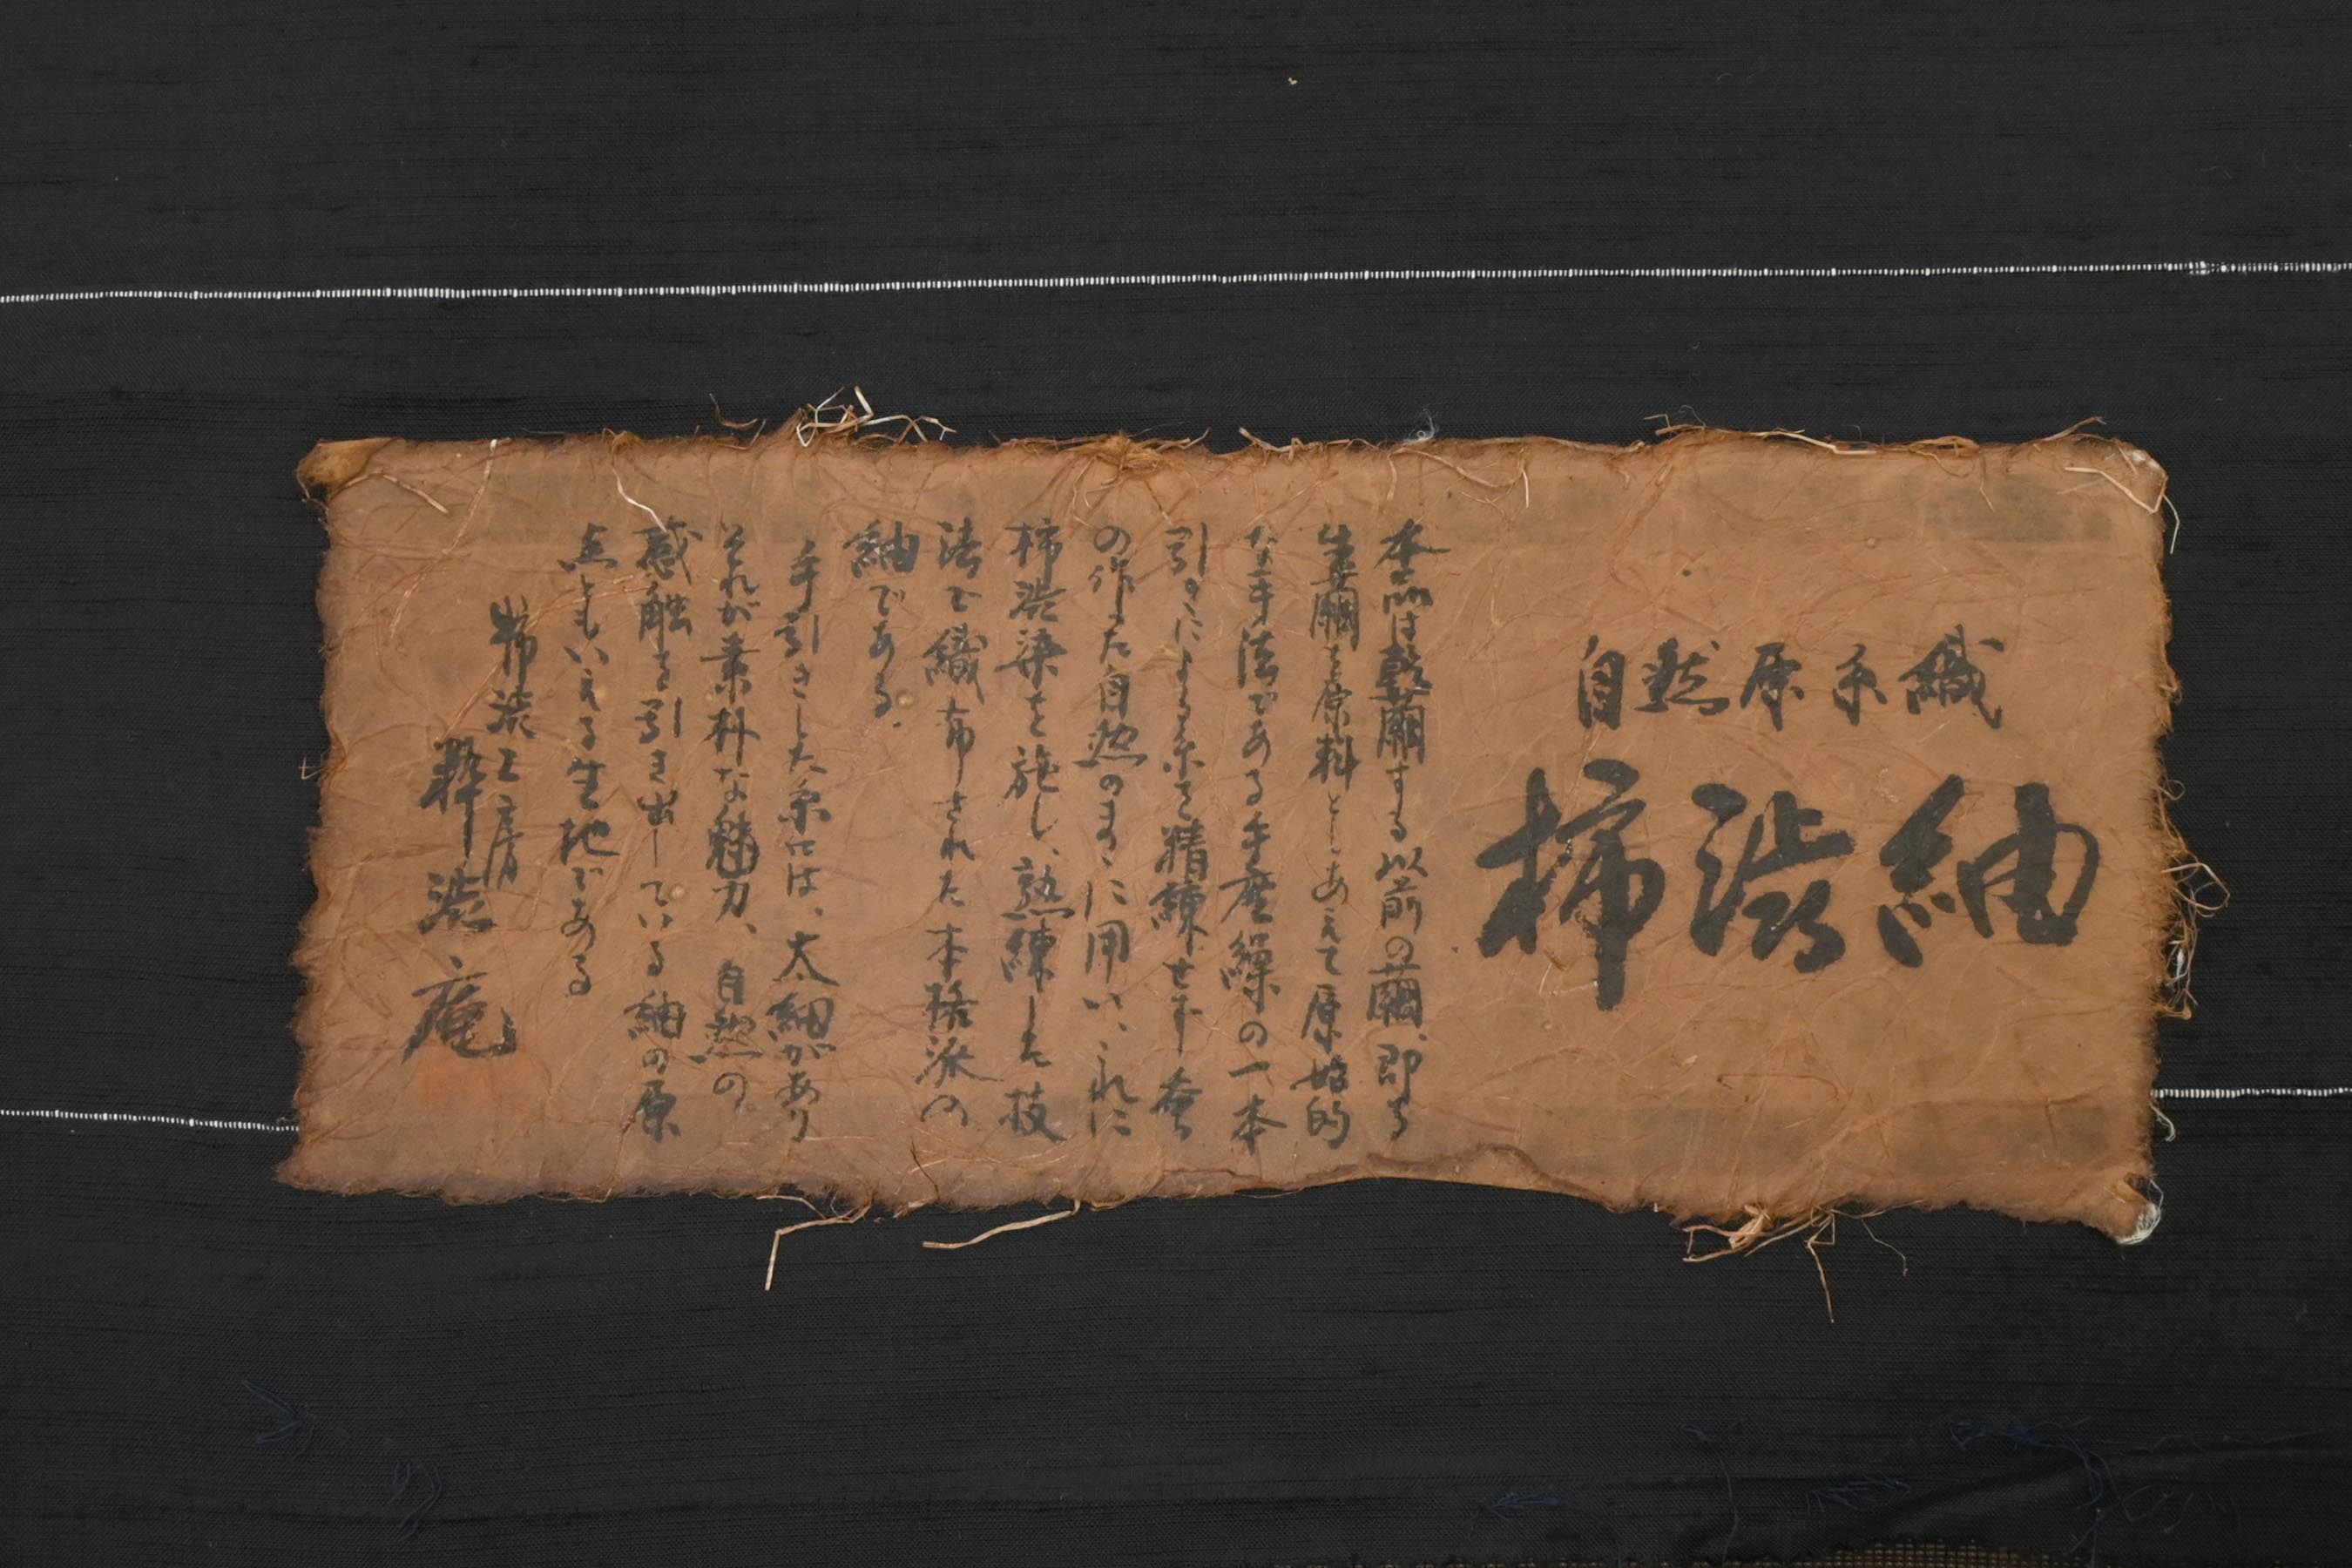 自然原糸織
柿渋紬
本品は乾繭する以前の繭、即ち
生繭を原料としあえて原始的
な手法である手座繰の一本
引きによる糸を精練せず
の作った自然のまゝに用い、これに
柿渋染を施し、熟練した技
法で織布された本格派の
紬である。
手引きした糸には、太細があり
それが素朴な魅力、自然の
感触を引き出している紬の原
点ともいえる生地である
柿渋工房
粋渋庵